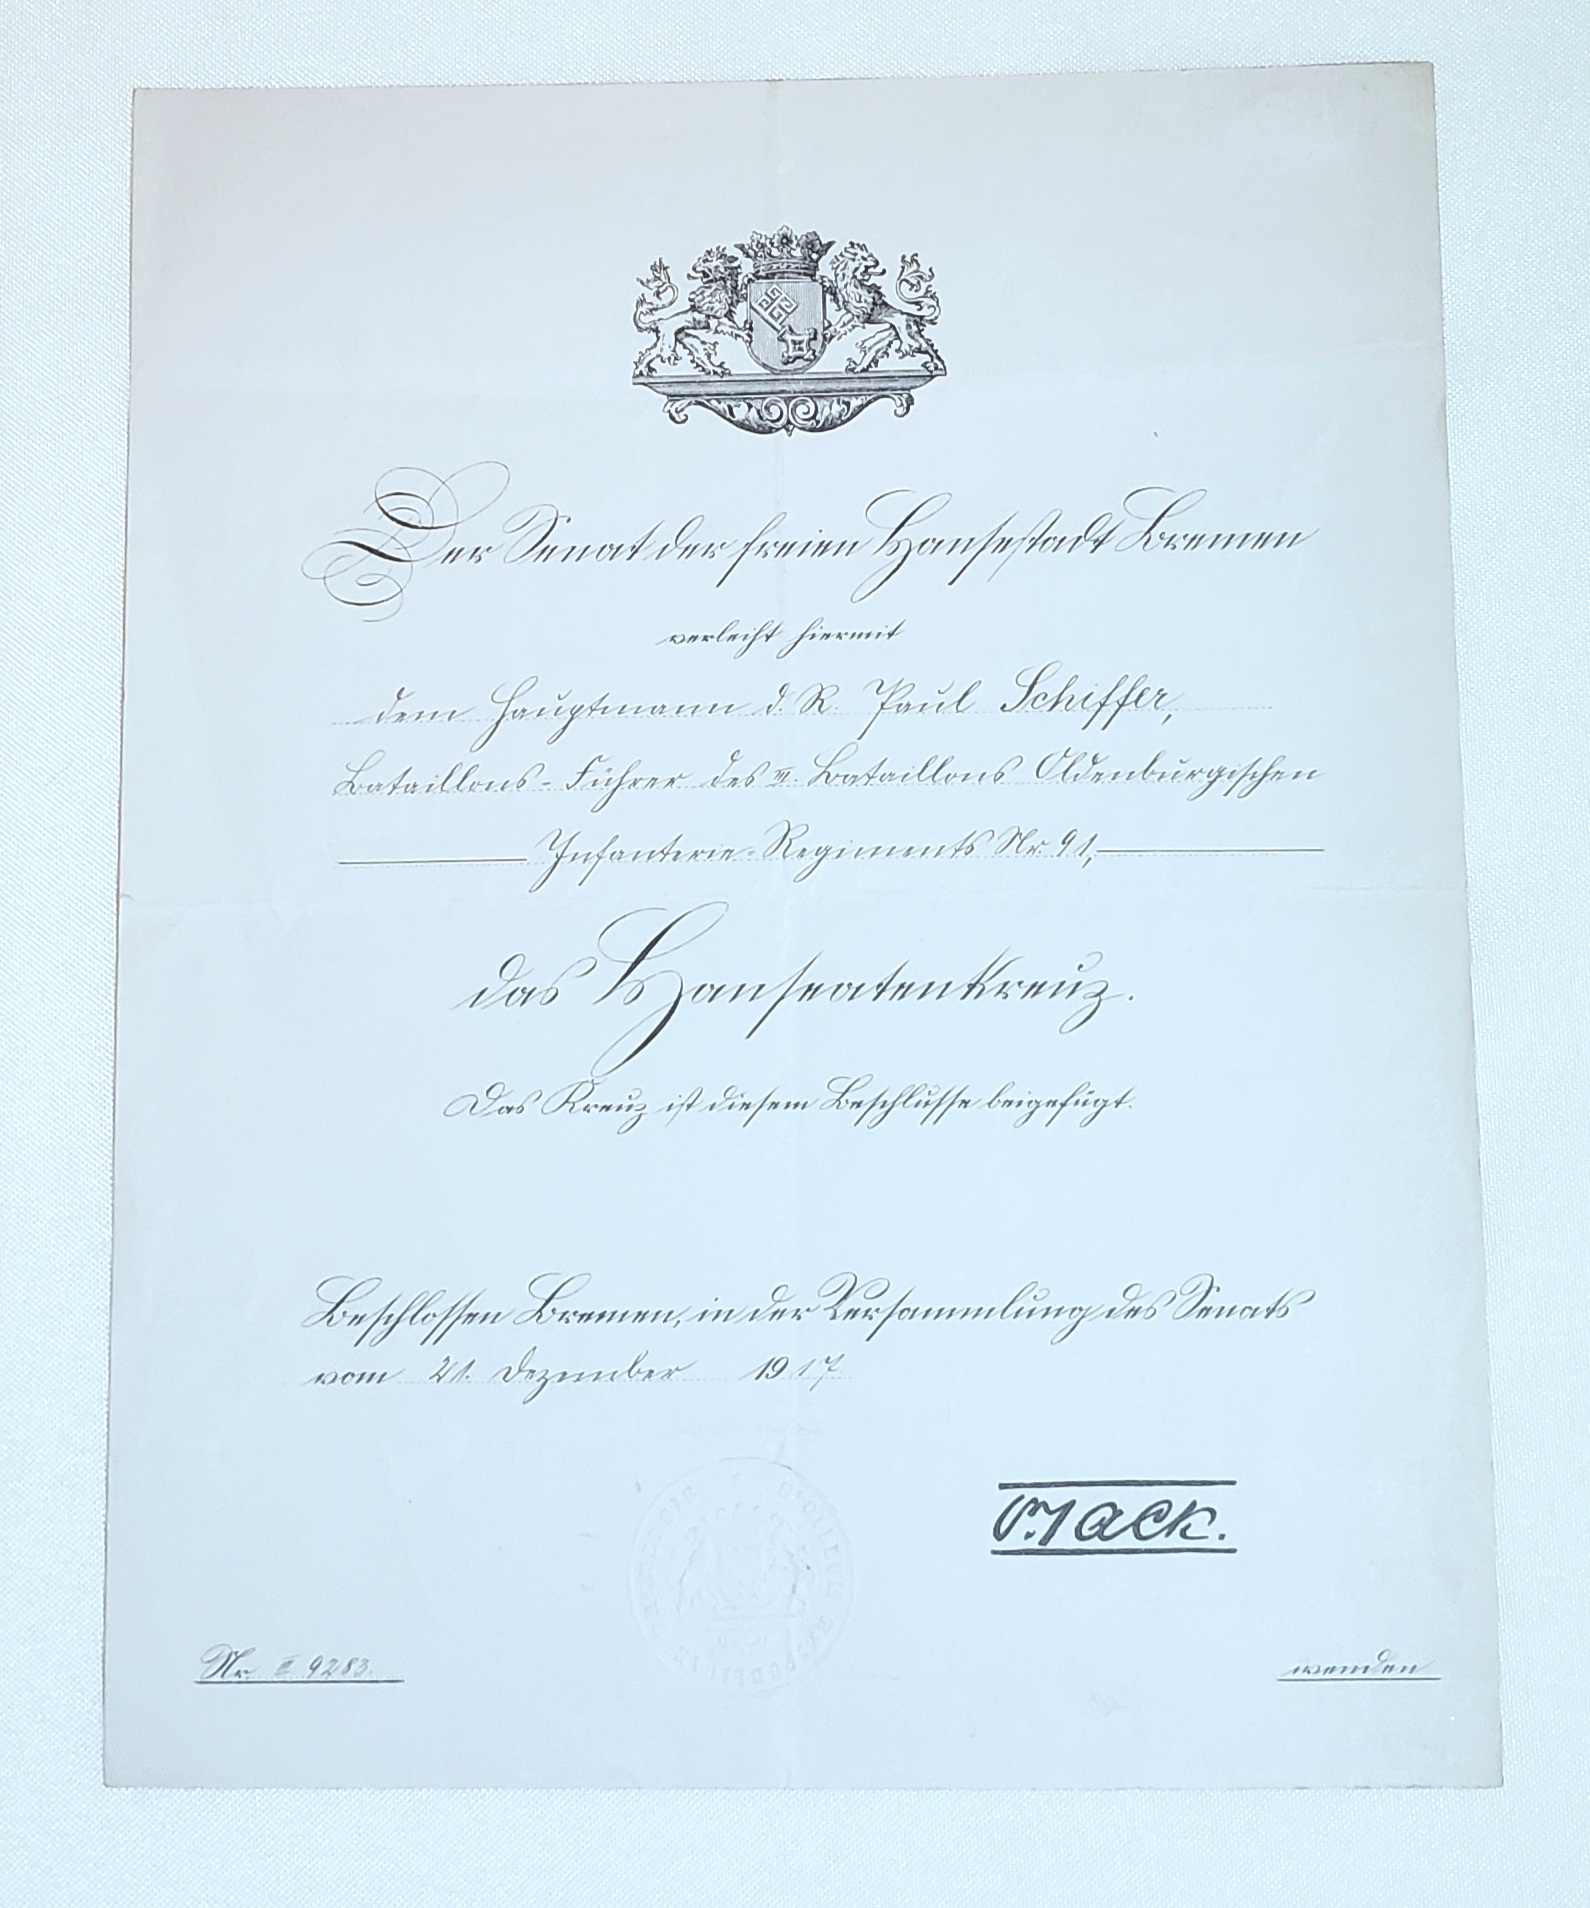 Der Senat der freien Hansestadt Bremen
verleiht hiermit
dem Hauptmann d. R. Paul Schiffer,
Bataillons-Führer des III. Bataillons Oldenburgischen
Infanterie-Regiments Nr. 91,
das Hanseatenkreuz.
Das Kreuz ist diesem Beschlusse beigefügt.
Beschlossen Bremen, in der Versammlung des Senats
vom 21. Dezember 1917
Nr. 9283.
wenden